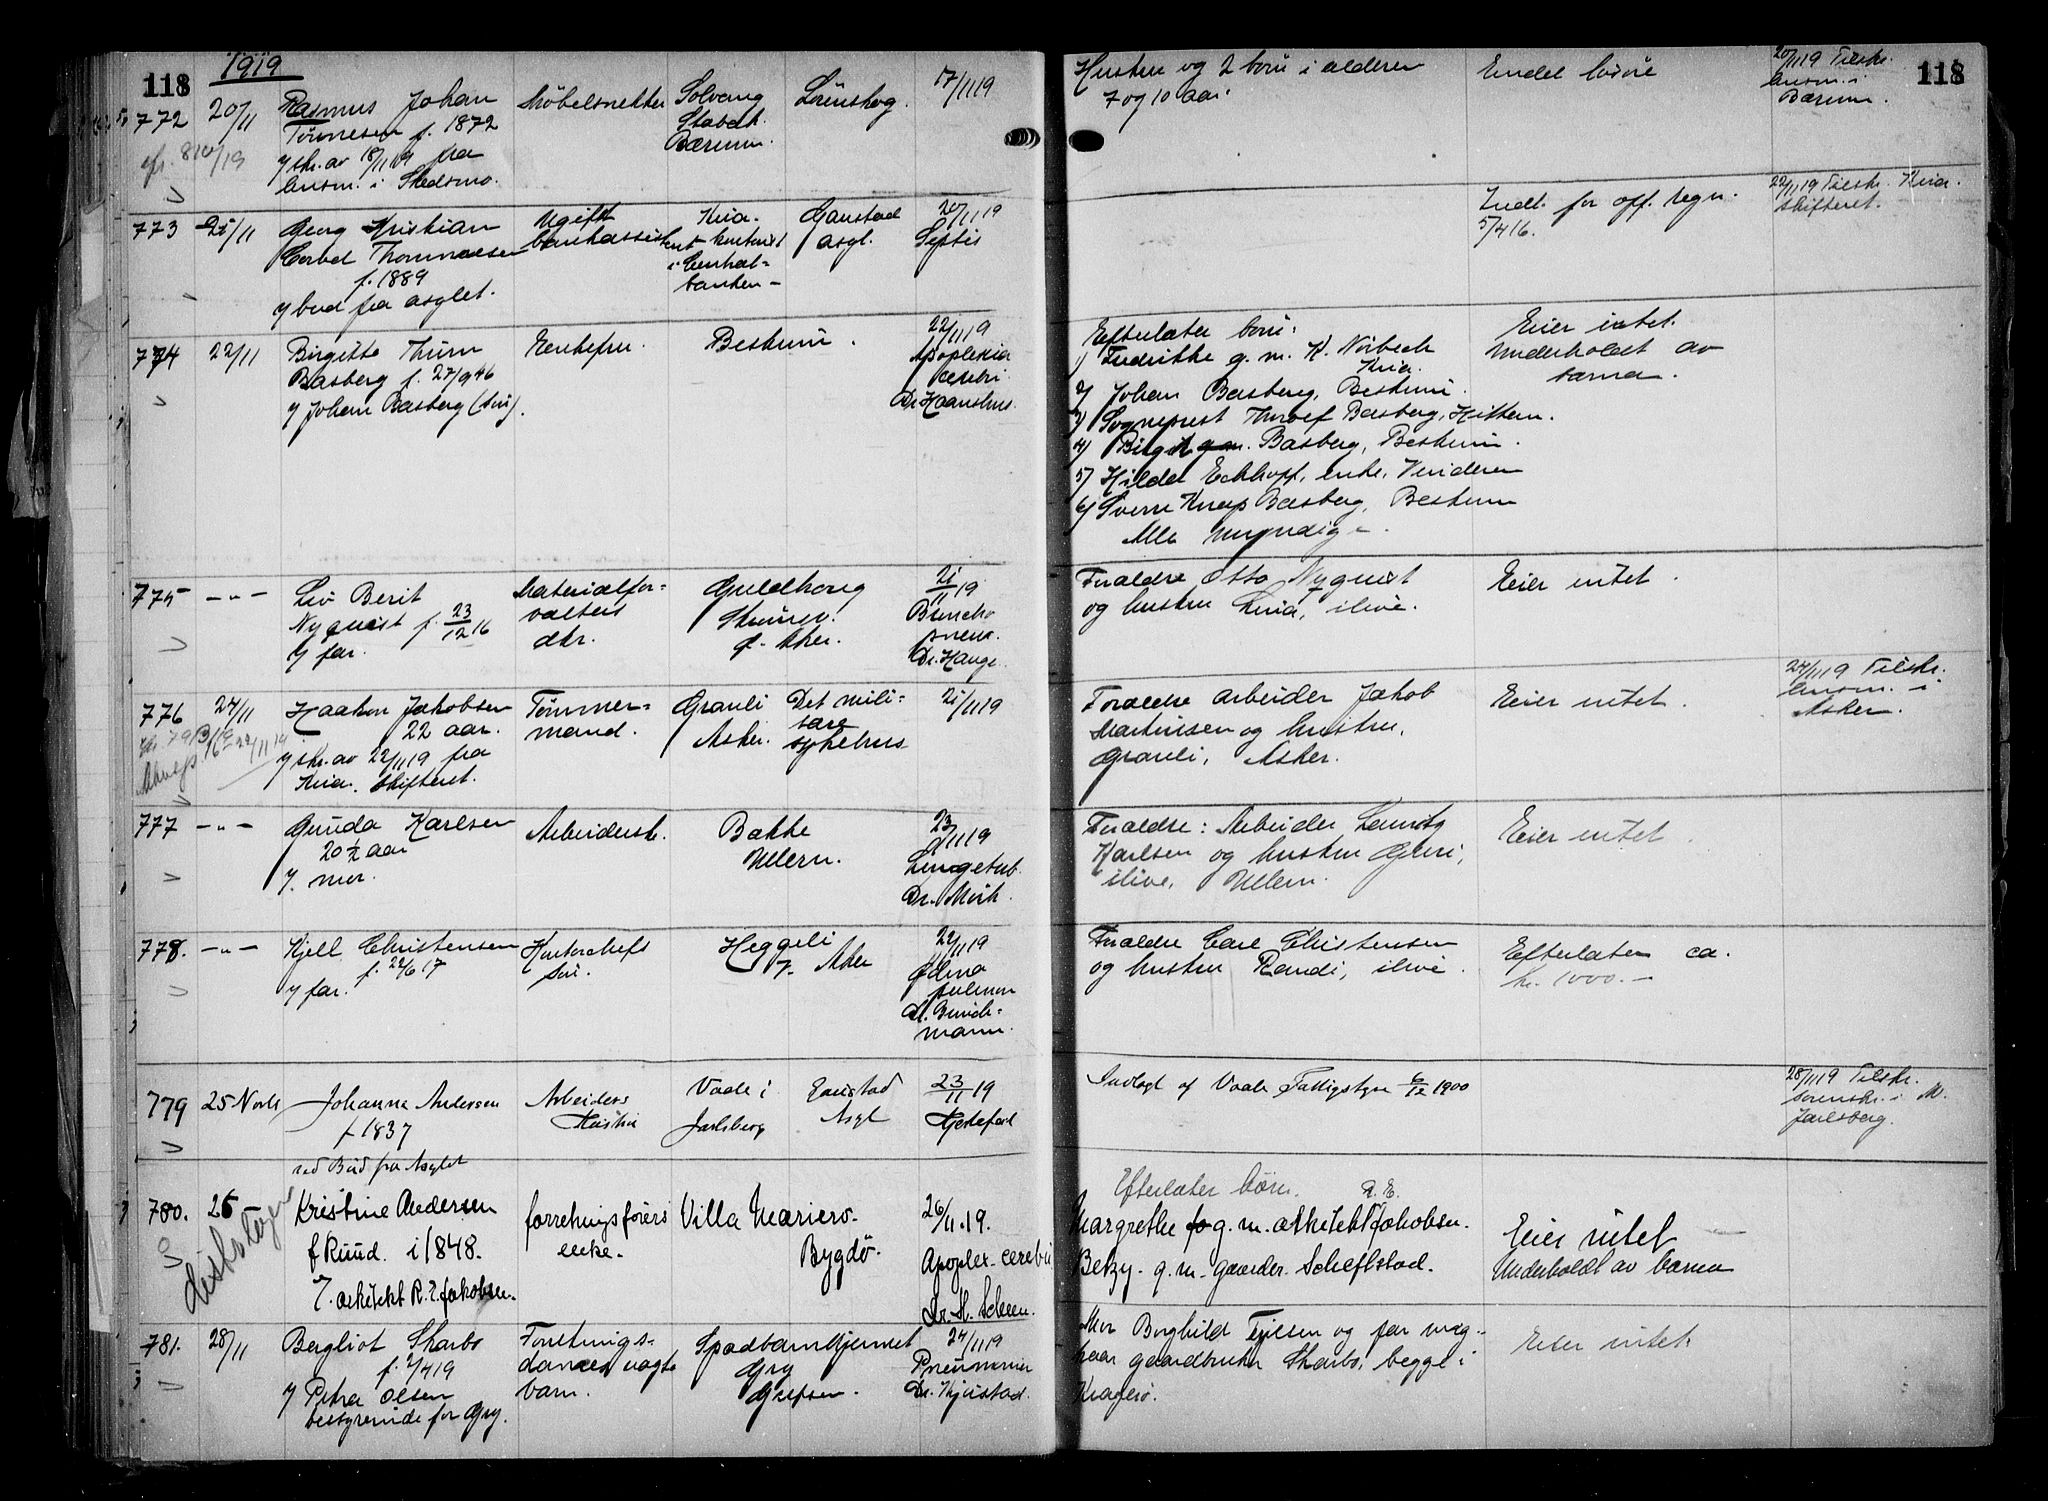 118
1919
118
772
20/11
Rasmus Johan
Tønnesen f. 1872
Møbelsnekker
Solvang
Stabek
Bærum.
Lørenskog.
17/11 19
Hustru og 2 børn i alderen
7 og 10 aar
Endel løsøre
20/11 19 Tilskr.
lensm. i
Bærum.
cfr. 810/19
7 skr. av 18/11 19 fra
lensm. i Skedsmo.
773
21/11
Georg Kristian
Thommesen
f. 1889
7 bud fra asylet.
Ugift
bankassistent
Kria.
i Central-
banken -
Gaustad
asyl.
20/11 19
Sepsis
Indl. for off. regn.
5/4 16.
22/11 19 Tilskr. Kria.
skifteret.
774
22/11
Birgitte Thurn
Basberg f. 27/9 46
7 Johan Basberg (søn).
Enkefru.
Bestum.
22/11 19
Apoplexia
cerebri.
Efterlater børn:
1) Fredrikke g. m. K. Nörbech
Kria.
2) Johan Basberg, Bestum.
3) Sogneprest Thoralf Basberg, Hitteren.
4) Basberg, Bestum.
5) Hilda Eckhoff, enke, Vinderen
6) Sverre Knap Basberg, Bestum
Alle myndige.
Eier intet.
Underholdt av
barna.
775
— " —
Liv Berit
Nyquist f. 23/12 16
7 far.
Materialfor-
valters
dtr.
Guldhaug
v. Aker.
21/11 19
Broncho
pneu.
Dr. Hauge.
Forældre Otto Nyquist
og hustru Lina, ilive.
Eier intet.
776
24/11
Haakon Jakobsen
22 aar.
7 skr. av 22/11 19 fra
Kria. skifteret.
Tømmer-
mand.
Grauli
Asker.
Det mili-
tære
sykehus
21/11 19
Forældre arbeider Jakob
Martinsen og hustru,
Grauli, Asker.
Eier intet.
24/11 19 Tilskr.
lensm. i
Asker.
777
— " —
Gunda Karlsen
20 ½ aar
7. mor.
Arbeiderske
Bakke
Ullern.
23/11 19
Lungetub.
Dr. Mørk.
Forældre: Arbeider Lauritz
Karlsen og hustru Guri,
ilive, Ullern.
Eier intet.
778.
— " —
Kjell Christensen
f. 22/6 17
7 far.
Kontorchefs
søn.
Heggeli
v. Aker
22/11 19
Ødma
pulmon
Dr. Bunde-
mann.
Forældre Carl Christensen
og hustru Randi, ilive.
Efterlater ca.
kr. 1000.—
779
25 Novbr
Johanna Andersen
f 1837
ved Bud fra Asylet
Arbeiders
Hustru
Vaale i
Jarlsberg
Gaustad
Asyl
23/11 19
Hjertefeil
Indlagt af Vaale Fattigstyre 6/12 1900
28/11 19 Tilskr.
sorenskr. i M.
Jarlsberg.
780.
26
Kristine Andersen
f Ruud. i 1848.
7. arkitekt R. E. Jakobsen.
forretningsførers
enke.
Villa Mariero.
Bygdø.
26/11.19.
Apoplex. cerebri
Dr. H. Scheen.
Efterlater børn.
R. E.
Margrethe g. m. arkitekt Jakobsen.
Betzy. g. m. gaarder. Scheflstad.
Eier intet
Underholdt av barna
781.
28/11
Bergliot Skarbo
f. 2/4 19
7 Petra Olsen
bestyrerinde for Gry.
Forretnings-
dames uegte
barn.
Spædbarnhjemmet
Gry
Grefsen.
24/11 19
Pneumonia
Dr. Kjøstad.
Mor Borghild og far ung-
kaar gaardbruker Skarbo, begge i
Kragerø.
Eier intet.